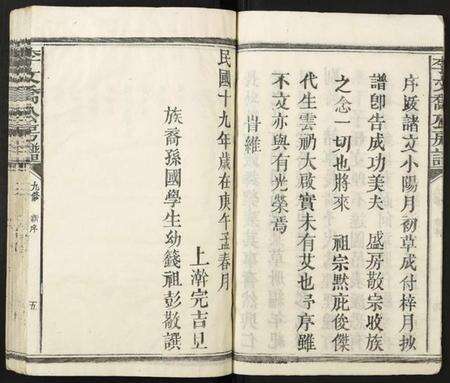 序跋諸文小陽月初草成付梓月抄
譜卽告成功美夫 盛房敬宗收族
之念一切也將來 祖宗默庇俊傑
代生雲礽大啟實未有艾也予序雖
不文亦與有光榮焉
旹維
民國十九年歲在庚午孟春月
上澣完吉旦
族裔孫國學生幼籛祖彭敬譔
九修 新序 五